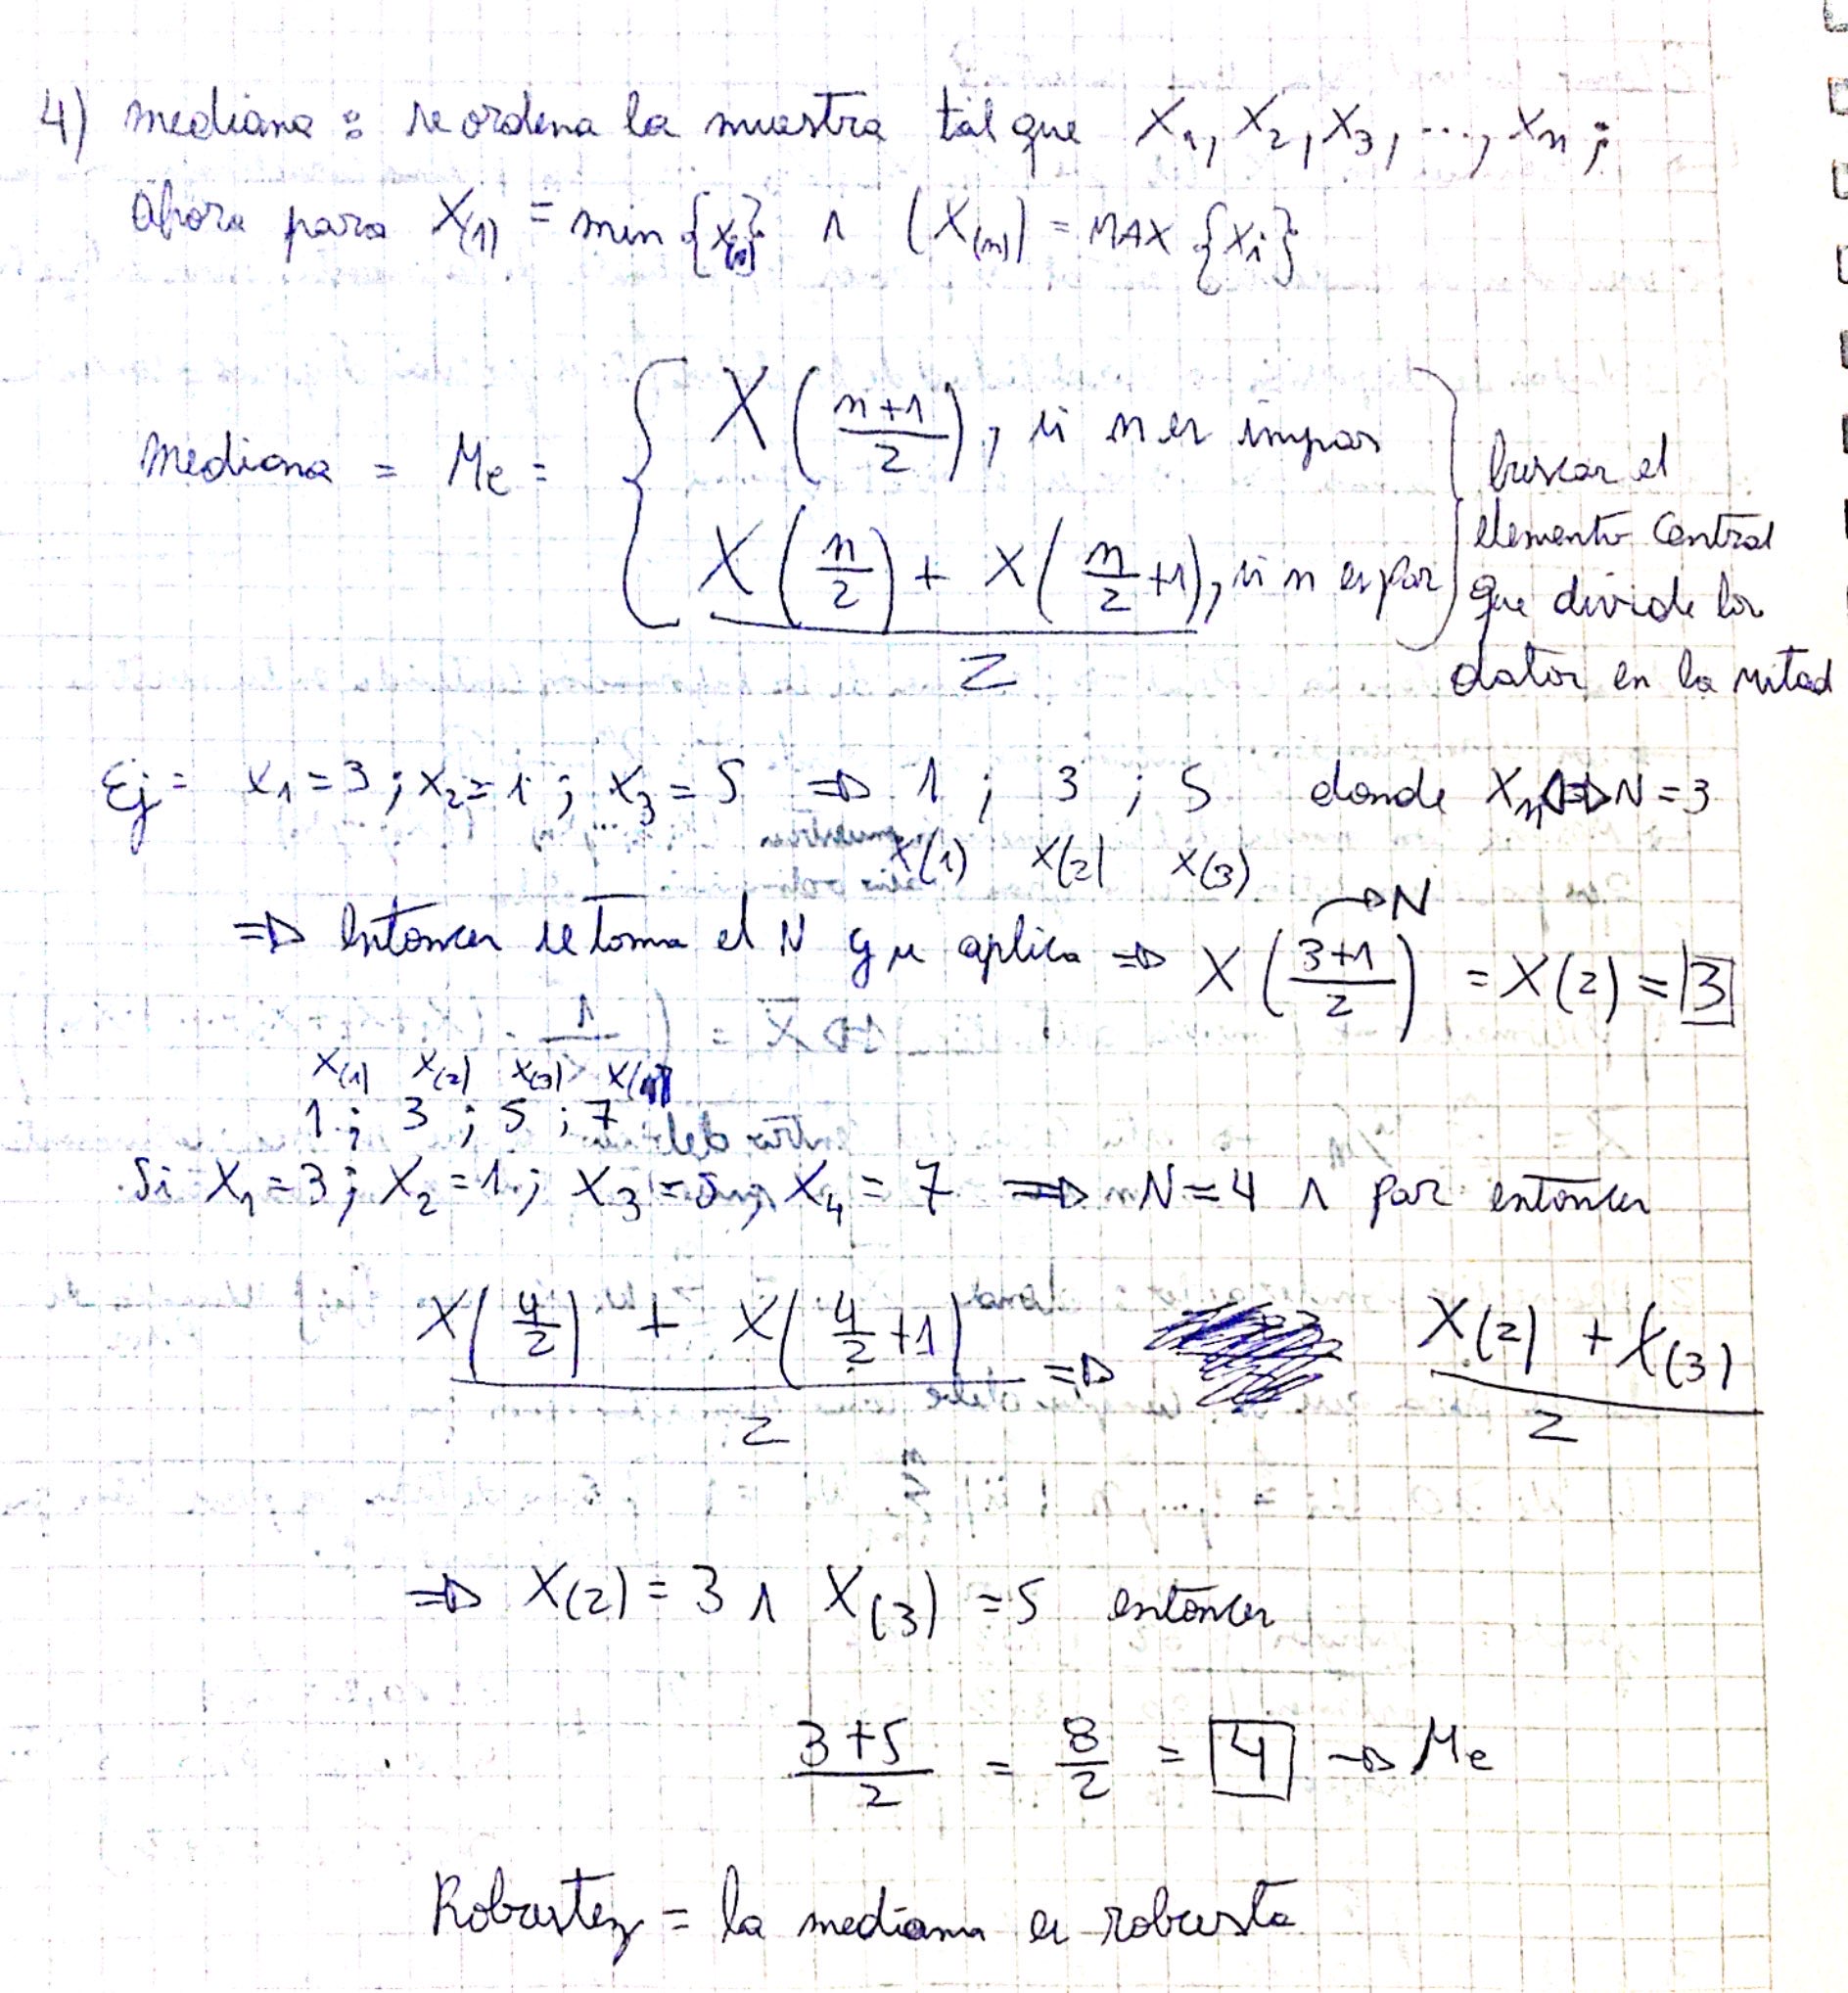 4) mediana : se ordena la muestra tal que X₁, X₂, X₃, ..., Xₙ ;
Ahora para X₍₁₎ = min {X₍ᵢ₎} ∧ (X₍ₙ₎) = MAX {Xᵢ}
Mediana = Me = { X((n+1)/2), si n es impar
(X(n/2) + X(n/2 +1))/2, si n es par }
buscar el
elemento central
que divide los
datos en la mitad
Ej = X₁ = 3 ; X₂ = 1 ; X₃ = 5 ⇒ 1 ; 3 ; 5 donde Xₙ ⇒ N = 3
X(1) X(2) X(3)
→ N
⇒ Entonces se toma el N y se aplica ⇒ X((3+1)/2) = X(2) = 3
X(1) X(2) X(3) X(4)
1 ; 3 ; 5 ; 7
Si X₁ = 3 ; X₂ = 1 ; X₃ = 5 ; X₄ = 7 ⇒ N = 4 ∧ par entonces
(X(4/2) + X(4/2 +1))/2 ⇒ (X(2) + X(3))/2
⇒ X(2) = 3 ∧ X(3) = 5 entonces
(3+5)/2 = 8/2 = 4 → Me
Robustez = la mediana es robusta